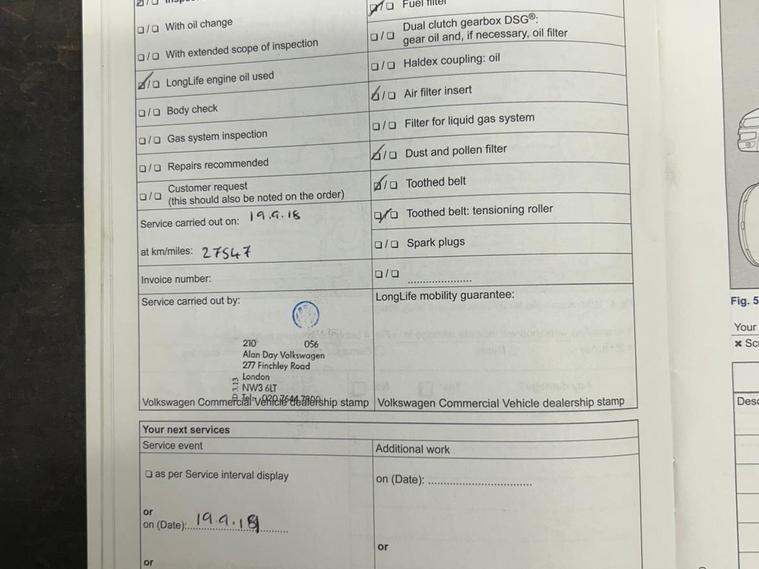 Fuel filter
With oil change
Dual clutch gearbox DSG®:
gear oil and, if necessary, oil filter
With extended scope of inspection
Haldex coupling: oil
LongLife engine oil used
Air filter insert
Body check
Filter for liquid gas system
Gas system inspection
Dust and pollen filter
Repairs recommended
Toothed belt
Customer request
(this should also be noted on the order)
Toothed belt: tensioning roller
Service carried out on: 19.9.18
Spark plugs
at km/miles: 27547
Invoice number:
Service carried out by:
LongLife mobility guarantee:
210 056
Alan Day Volkswagen
277 Finchley Road
London
NW3 6LT
Volkswagen Commercial Vehicle dealership stamp
Volkswagen Commercial Vehicle dealership stamp
Your next services
Service event
Additional work
as per Service interval display
on (Date):
or
on (Date): 19.9.19
or
or
Fig. 5
Your
Desc